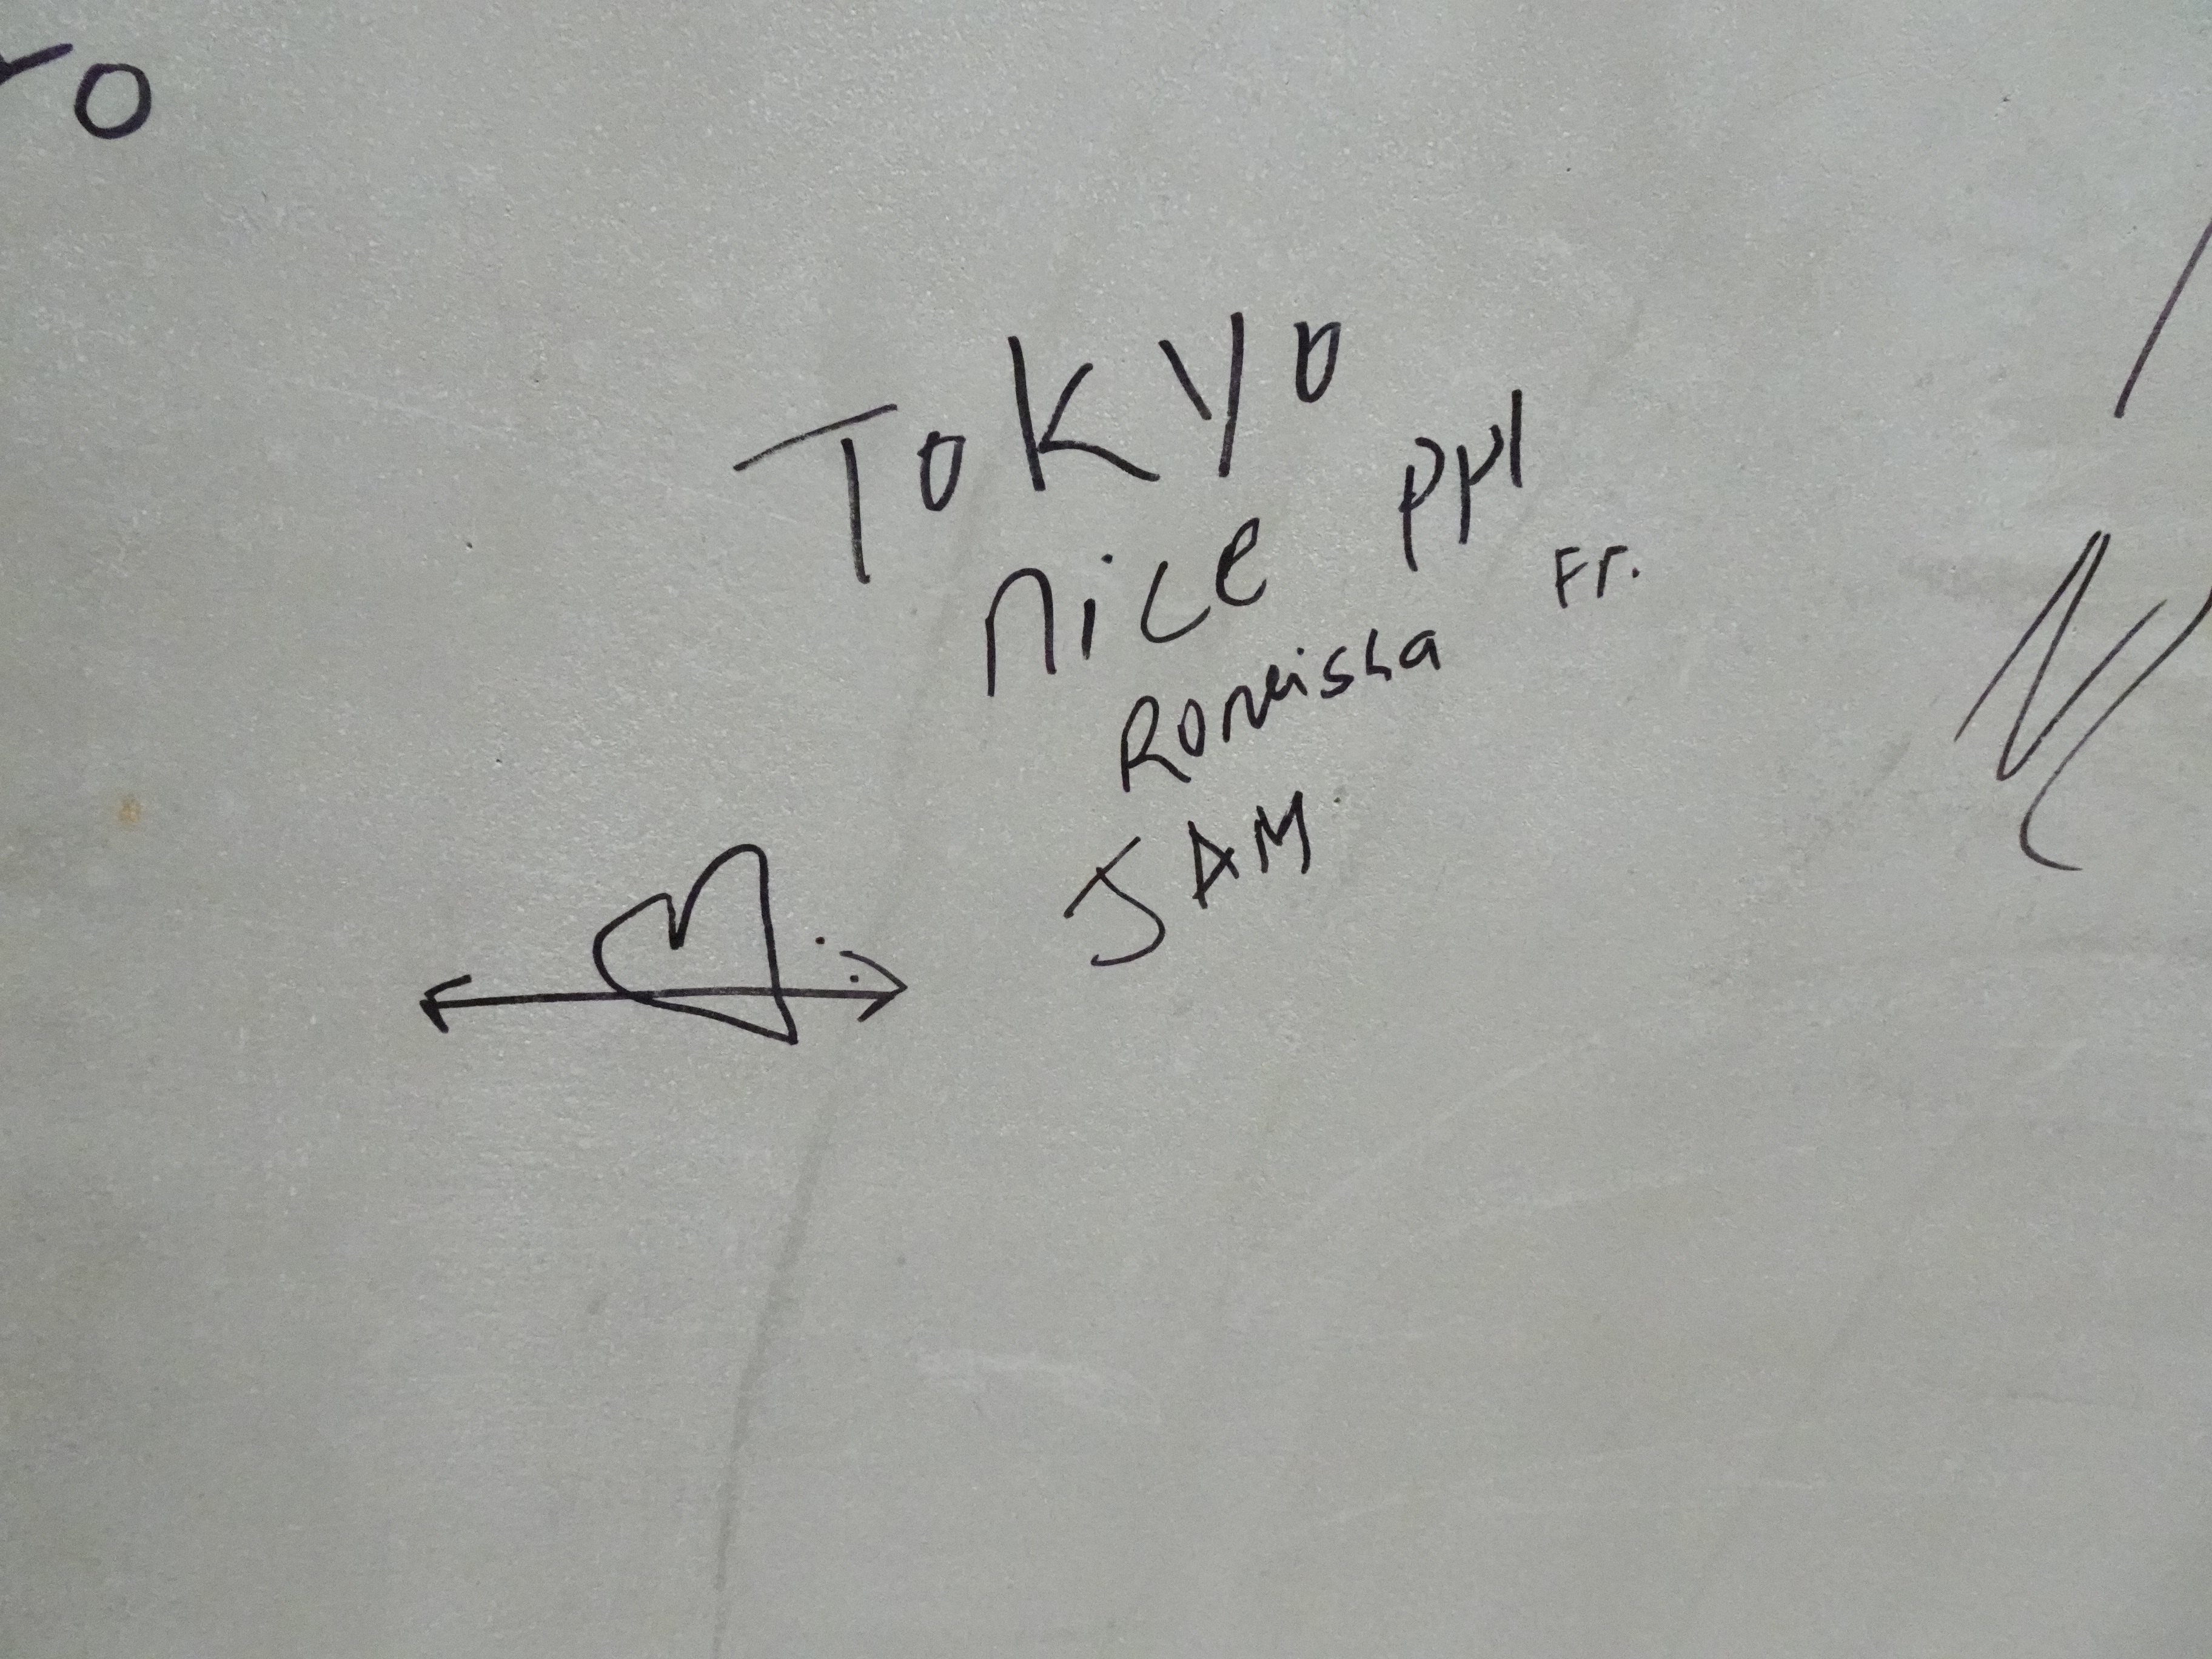 TOKYO
nice ppl
Fr.
Roneissa
JAM
:)